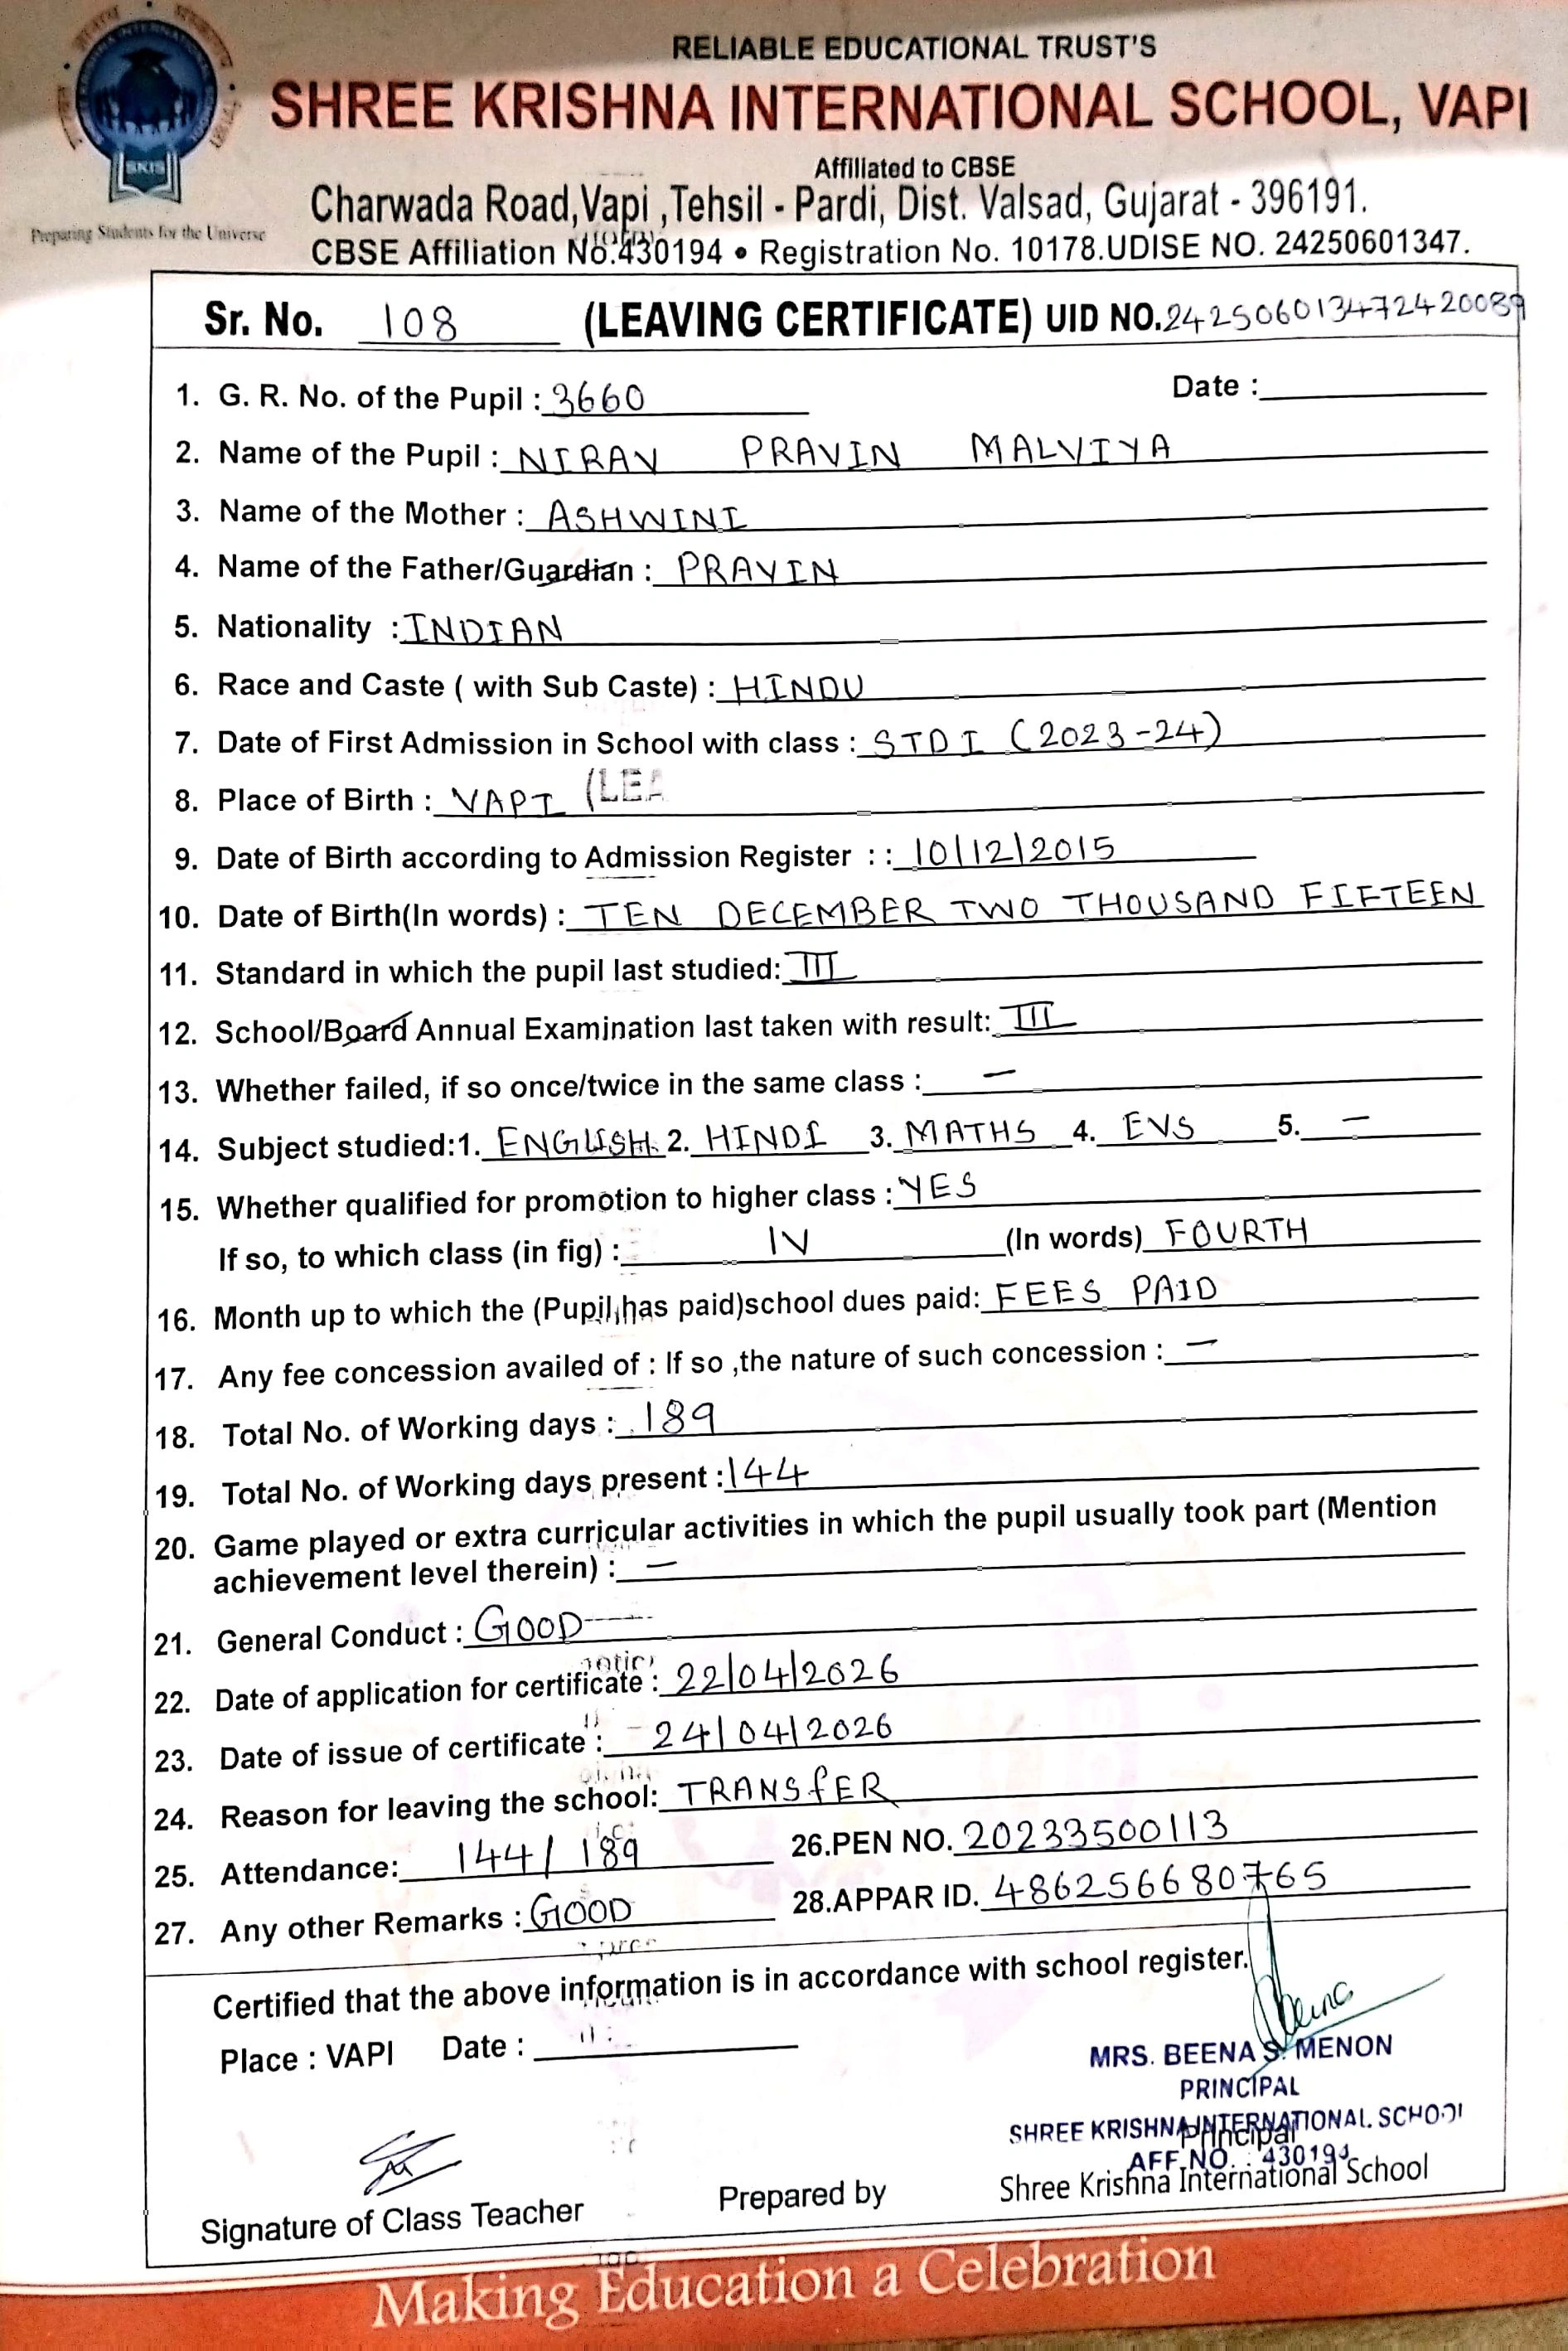 RELIABLE EDUCATIONAL TRUST'S
SHREE KRISHNA INTERNATIONAL SCHOOL, VAPI
Affiliated to CBSE
SKIS
Preparing Students for the Universe
Charwada Road,Vapi ,Tehsil - Pardi, Dist. Valsad, Gujarat - 396191.
CBSE Affiliation No.430194 • Registration No. 10178.UDISE NO. 24250601347.
Sr. No. 108 (LEAVING CERTIFICATE) UID NO.242506013472420089
1. G. R. No. of the Pupil : 3660 Date :
2. Name of the Pupil : NIRAV PRAVIN MALVIYA
3. Name of the Mother : ASHWINI
4. Name of the Father/Guardian : PRAVIN
5. Nationality : INDIAN
6. Race and Caste ( with Sub Caste) : HINDU
7. Date of First Admission in School with class : STD I (2023-24)
8. Place of Birth : VAPI (LEA
9. Date of Birth according to Admission Register : : 10/12/2015
10. Date of Birth(In words) : TEN DECEMBER TWO THOUSAND FIFTEEN
11. Standard in which the pupil last studied: III
12. School/Board Annual Examination last taken with result: III
13. Whether failed, if so once/twice in the same class : —
14. Subject studied:1. ENGLISH 2. HINDI 3. MATHS 4. EVS 5. —
15. Whether qualified for promotion to higher class : YES
If so, to which class (in fig) : IV (In words) FOURTH
16. Month up to which the (Pupil has paid)school dues paid: FEES PAID
17. Any fee concession availed of : If so ,the nature of such concession : —
18. Total No. of Working days : 189
19. Total No. of Working days present : 144
20. Game played or extra curricular activities in which the pupil usually took part (Mention
achievement level therein) : —
21. General Conduct : GOOD
22. Date of application for certificate : 22/04/2026
23. Date of issue of certificate : 24/04/2026
24. Reason for leaving the school: TRANSfER
25. Attendance: 144/189 26.PEN NO. 20233500113
27. Any other Remarks : GOOD 28.APPAR ID. 486256680765
Certified that the above information is in accordance with school register.
Place : VAPI Date :
MRS. BEENA S. MENON
PRINCIPAL
SHREE KRISHNA INTERNATIONAL SCHOOL
Principal
AFF.NO. : 430194
Shree Krishna International School
Signature of Class Teacher Prepared by
Making Education a Celebration